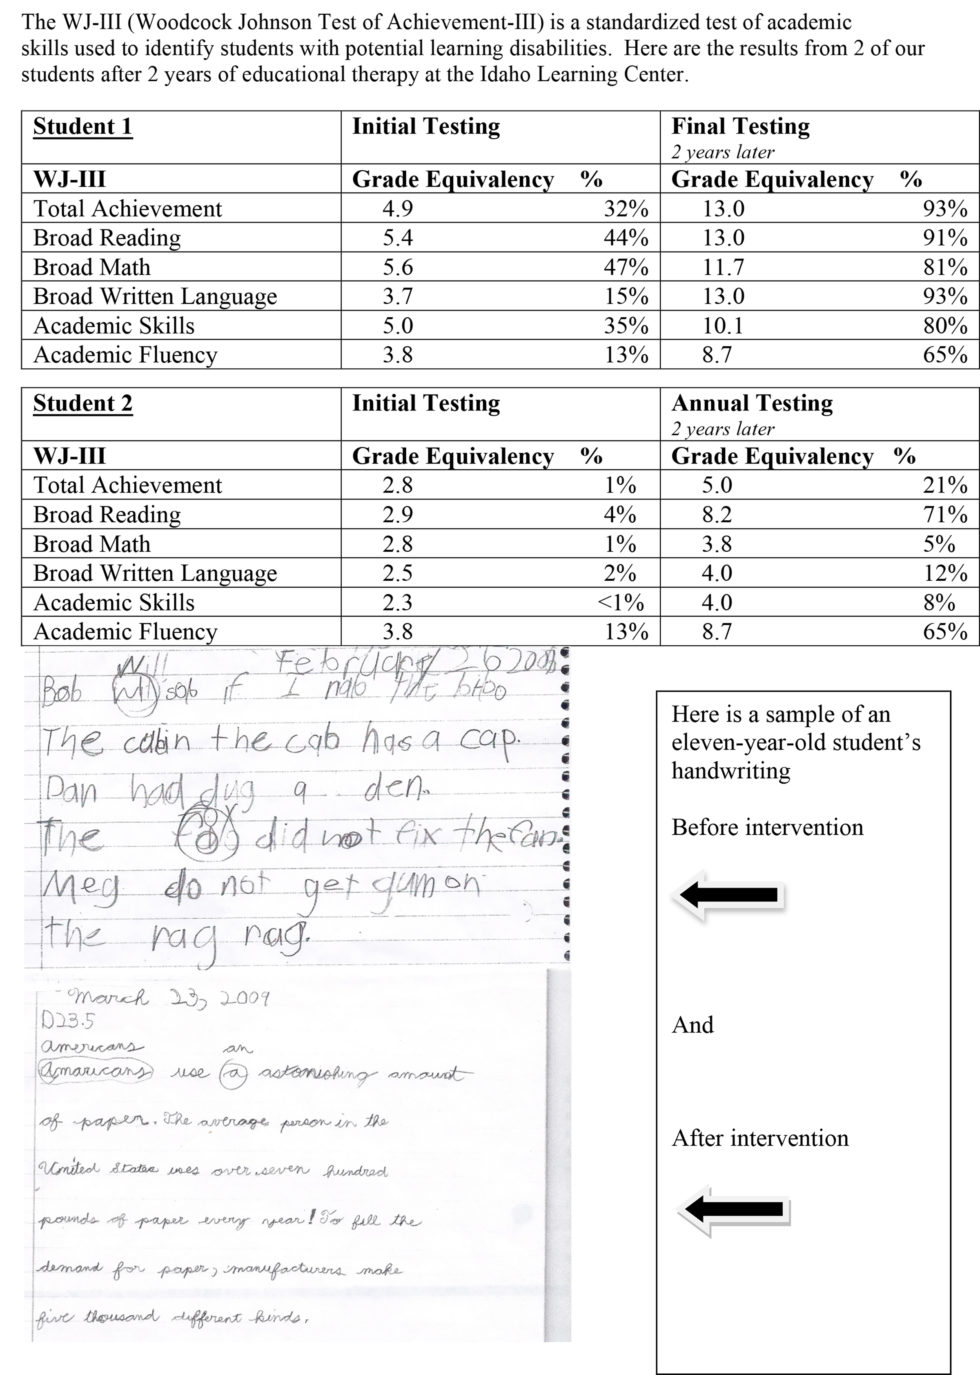 The WJ-III (Woodcock Johnson Test of Achievement-III) is a standardized test of academic
skills used to identify students with potential learning disabilities.  Here are the results from 2 of our
students after 2 years of educational therapy at the Idaho Learning Center.
Student 1 Initial Testing Final Testing
2 years later
WJ-III Grade Equivalency % Grade Equivalency %
Total Achievement 4.9 32% 13.0 93%
Broad Reading 5.4 44% 13.0 91%
Broad Math 5.6 47% 11.7 81%
Broad Written Language 3.7 15% 13.0 93%
Academic Skills 5.0 35% 10.1 80%
Academic Fluency 3.8 13% 8.7 65%
Student 2 Initial Testing Annual Testing
2 years later
WJ-III Grade Equivalency % Grade Equivalency %
Total Achievement 2.8 1% 5.0 21%
Broad Reading 2.9 4% 8.2 71%
Broad Math 2.8 1% 3.8 5%
Broad Written Language 2.5 2% 4.0 12%
Academic Skills 2.3 <1% 4.0 8%
Academic Fluency 3.8 13% 8.7 65%
Will February 26 2008
Bob sob if I nab the
The cabin the cab has a cap.
Dan had dug a den.
The did not fix the fan.
Meg do not get gum on
the rag rag.
March 23, 2009
D23.5
Americans an
Amaricans use a astonishing amount
of paper. The average person in the
United States uses over seven hundred
pounds of paper every year! To fill the
demand for paper, manufacturers make
five thousand different kinds.
Here is a sample of an
eleven-year-old student's
handwriting
Before intervention
And
After intervention